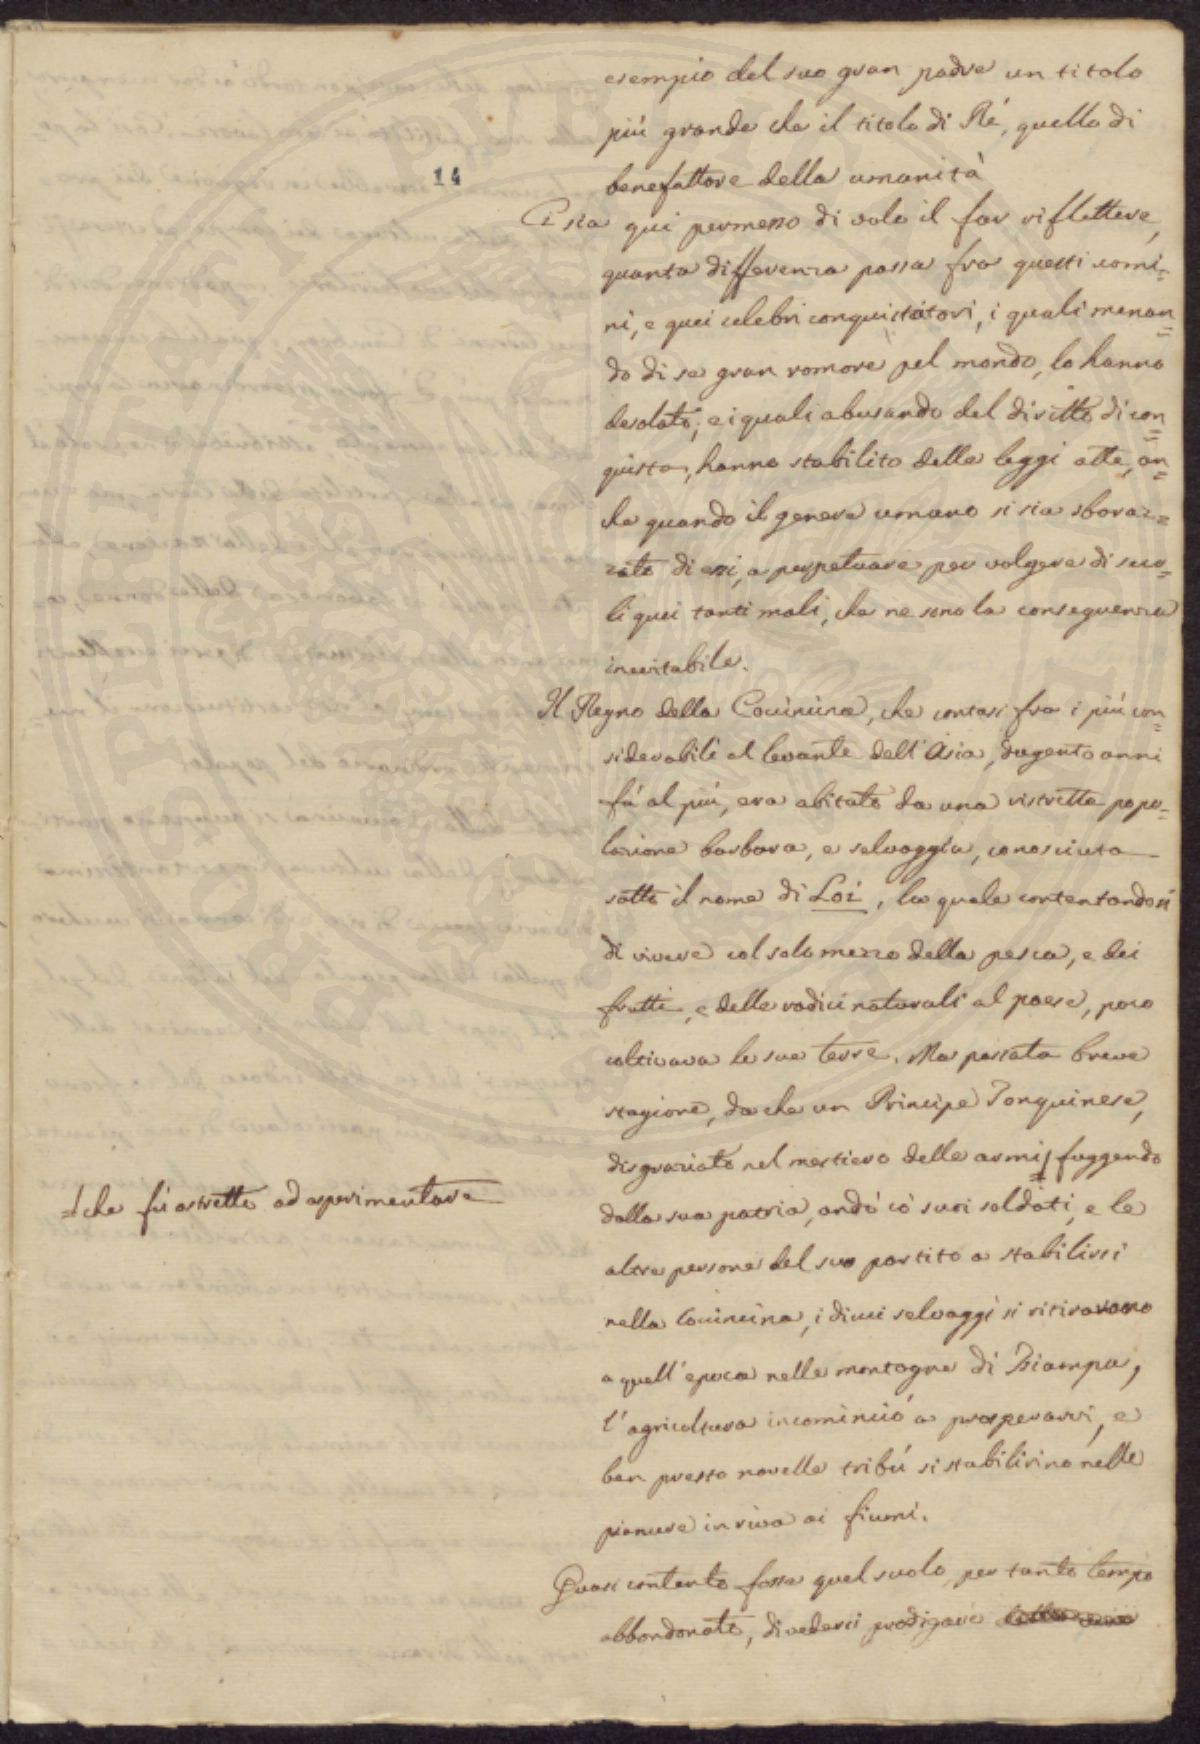 14
esempio del suo gran padre un titolo
più grande che il titolo di Ré, quello di
benefattore della umanità
Ci sia qui permesso di volo il far riflettere,
quanta differenza passa fra questi uomi=
ni, e quei celebri conquistatori, i quali menan=
do di se gran romore pel mondo, lo hanno
desolato; e i quali abusando del diritto di con=
quista, hanno stabilito delle leggi atte, an=
che quando il genere umano si sia sbaraz=
zato di essi, a perpetuare per volgere di seco=
li quei tanti mali, che ne sono la conseguenza
inevitabile.
Il Regno della Cocincina, che contasi fra i più con=
siderabili al levante dell'Asia, dugento anni
fà al più, era abitato da una ristretta popo=
lazione barbara, e selvaggia, conosciuta
sotto il nome di Loi, la quale contentandosi
di vivere col solo mezzo della pesca, e dei
frutti, e delle radici naturali al paese, poco
coltivava le sue terre. Ma passata breve
stagione, da che un Principe Tonquinese,
disgraziato nel mestiero delle armi fuggendo
che fù astretto ad asperimentare
dalla sua patria, andò có suoi soldati, e le
altre persone del suo partito a stabilirsi
nella Cocincina, i di cui selvaggi si ritirarono
a quell'epoca nelle montagne di Tsiampa,
l'agricoltura incominciò a prosperarvi, e
ben presto novelle tribù si stabilirino nelle
pianure in riva ai fiumi.
Quasi contento fosse quel suolo, per tanto tempo
abbondonato, di vedersi prodigare